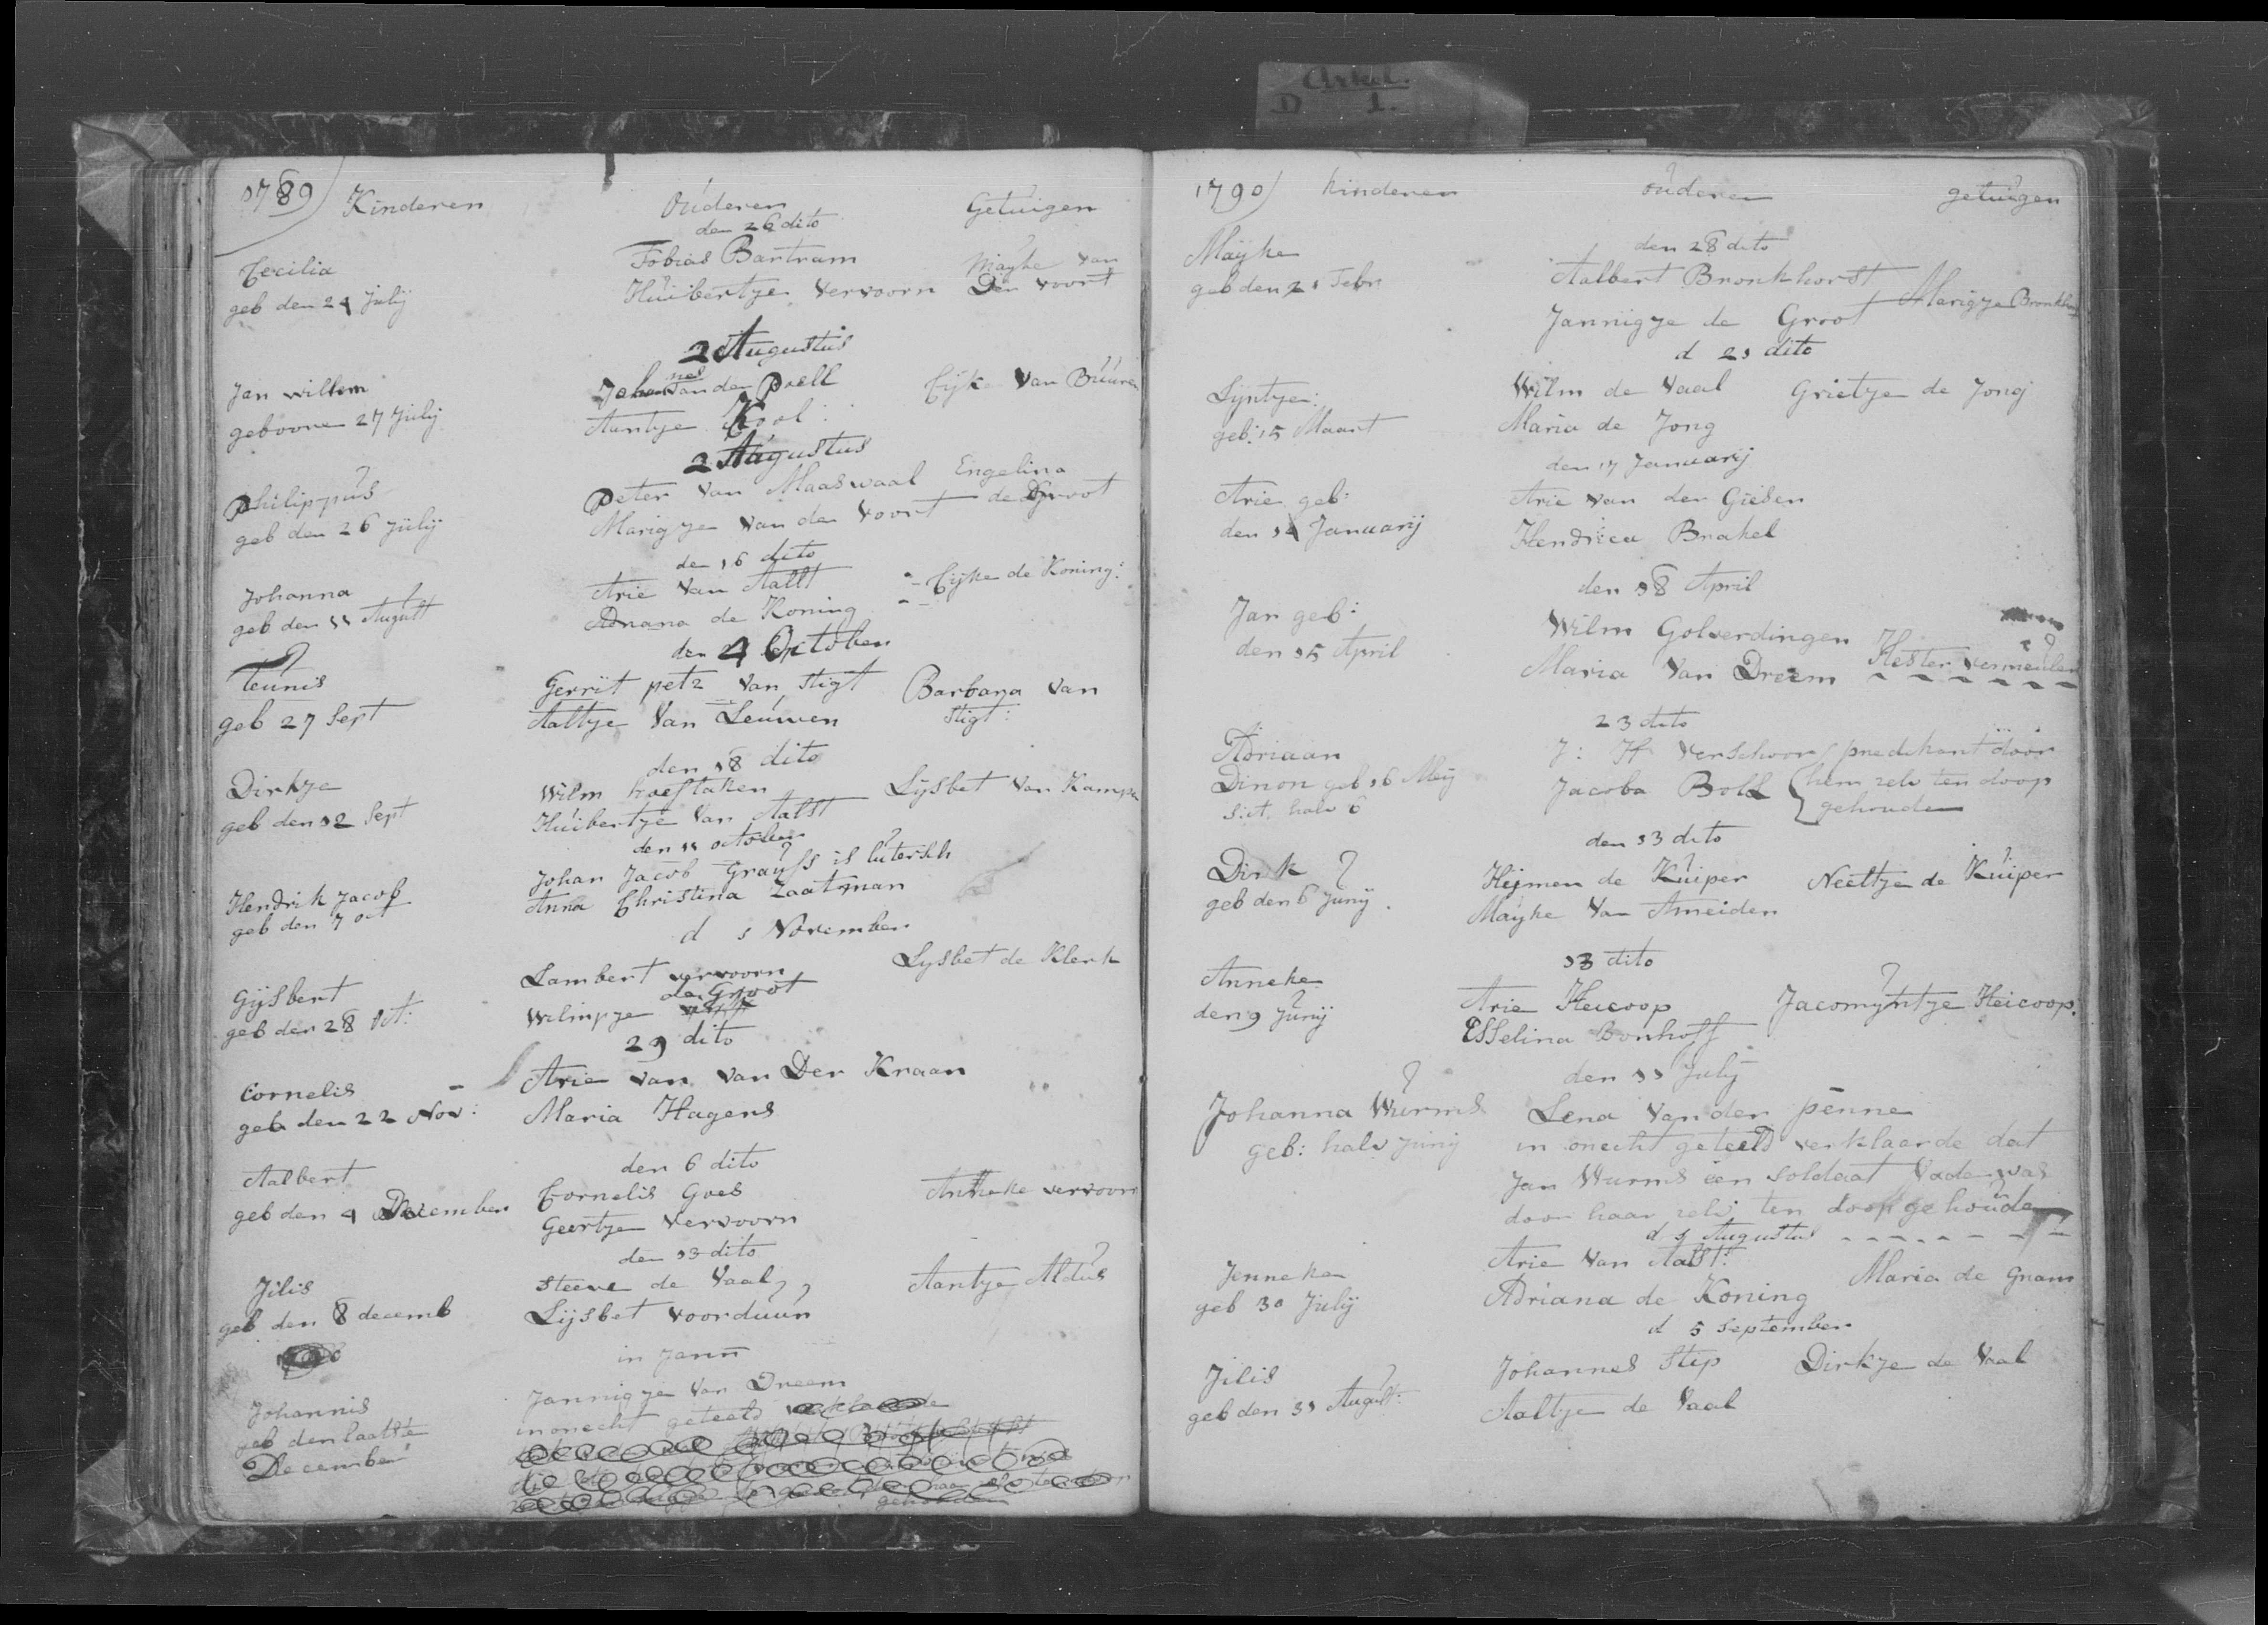 Arkel.
D 1.
1789) Kinderen Ouderen Getuigen
den 26 dito
Cecilia Tobias Bartram Mayke van
geb den 24 July Huibertje Vervoorn Den voort
2 Augustus
Jan willem Johannes van der poell Eijke Van Buuren
geboore 27 July Aantje Kool:
2 Augustus
Philippus Peter van Maaswaal Engelina
geb den 26 july Marigje van de Voort de Groot
den 16 dito
Johanna Arie van Aalst Eijke de Koning:
geb den 11 August Adriana de Koning
den 4 October
Teunis Gerrit petz van Stigt Barbara van
geb 27 Sept Aaltje Van Leuwen Stigt:
den 18 dito
Dirkje Wilm hoeftaken Lijsbet van Kampe
geb den 12 Sept Huibertje Van Aalst
den 11 october
Hendrik Jacob Johan Jacob Grauss is luterseh
geb den 7 oct Anna Christina Zaatman
d 1 November
Gijsbert Lambert vervoorn Lysbet de Klerk
geb den 28 Oct: Wilmpje de Groot
29 dito
Cornelis Arie van van Der Kraan
geb den 22 Nov: Maria Hagens
den 6 dito
Aalbert Cornelis Goes Anneke vervoorn
geb den 4 December Geertje Vervoorn
den 13 dito
Jilis Steeve de Vaal Aantje Aldus
geb den 8 decemb Lijsbet voorduun
in Jann
Johannis Jannigje Van Dreem
geb den laatste in onecht geteeld
December
gehouden
1790) kinderen ouderen getuigen
den 28 dito
Mayke Aalbert Bronkhorst Marigje Bronkhorst
geb den 21 Febr Jannigje de Groot
d 21 dito
Lyntje: Wilm de Vaal Grietje de Jong
geb: 15 Maart Maria de Jong
den 17 Januarij
Arie geb: Arie van der Gieben
den 14 Januarij Hendrica Brakel
den 18 April
Jan geb: Wilm Golverdingen Hester vermeulen
den 15 April Maria Van Dreem
23 dito
Adriaan J: H verschoor predikant door
Dinon geb 16 Mey Jacoba Boll hem zelv ten doop
s:t. halv 6 gehouden
den 13 dito
Dirk Heijmen de Kuiper Neeltje de Kuiper
geb den 6 Junij Mayke Van Ameiden
13 dito
Anneke Arie Heicoop Jacomyntje Heicoop.
den 9 Junij Esselina Bonhoff
den 11 July
Johanna Wurms Lena Van der penne
geb: halv junij in onecht geteeld verklaarde dat
Jan Wurms een Soldaat Vader was
door haar zelv ten doop gehouden
d 1 Augustus
Jenneke Arie Van Aalst: Maria de Gram
geb 30 July Adriana de Koning
d 5 September
Jilis Johannes Stip Dirkje de Vaal
geb den 31 August: Aaltje de Vaal